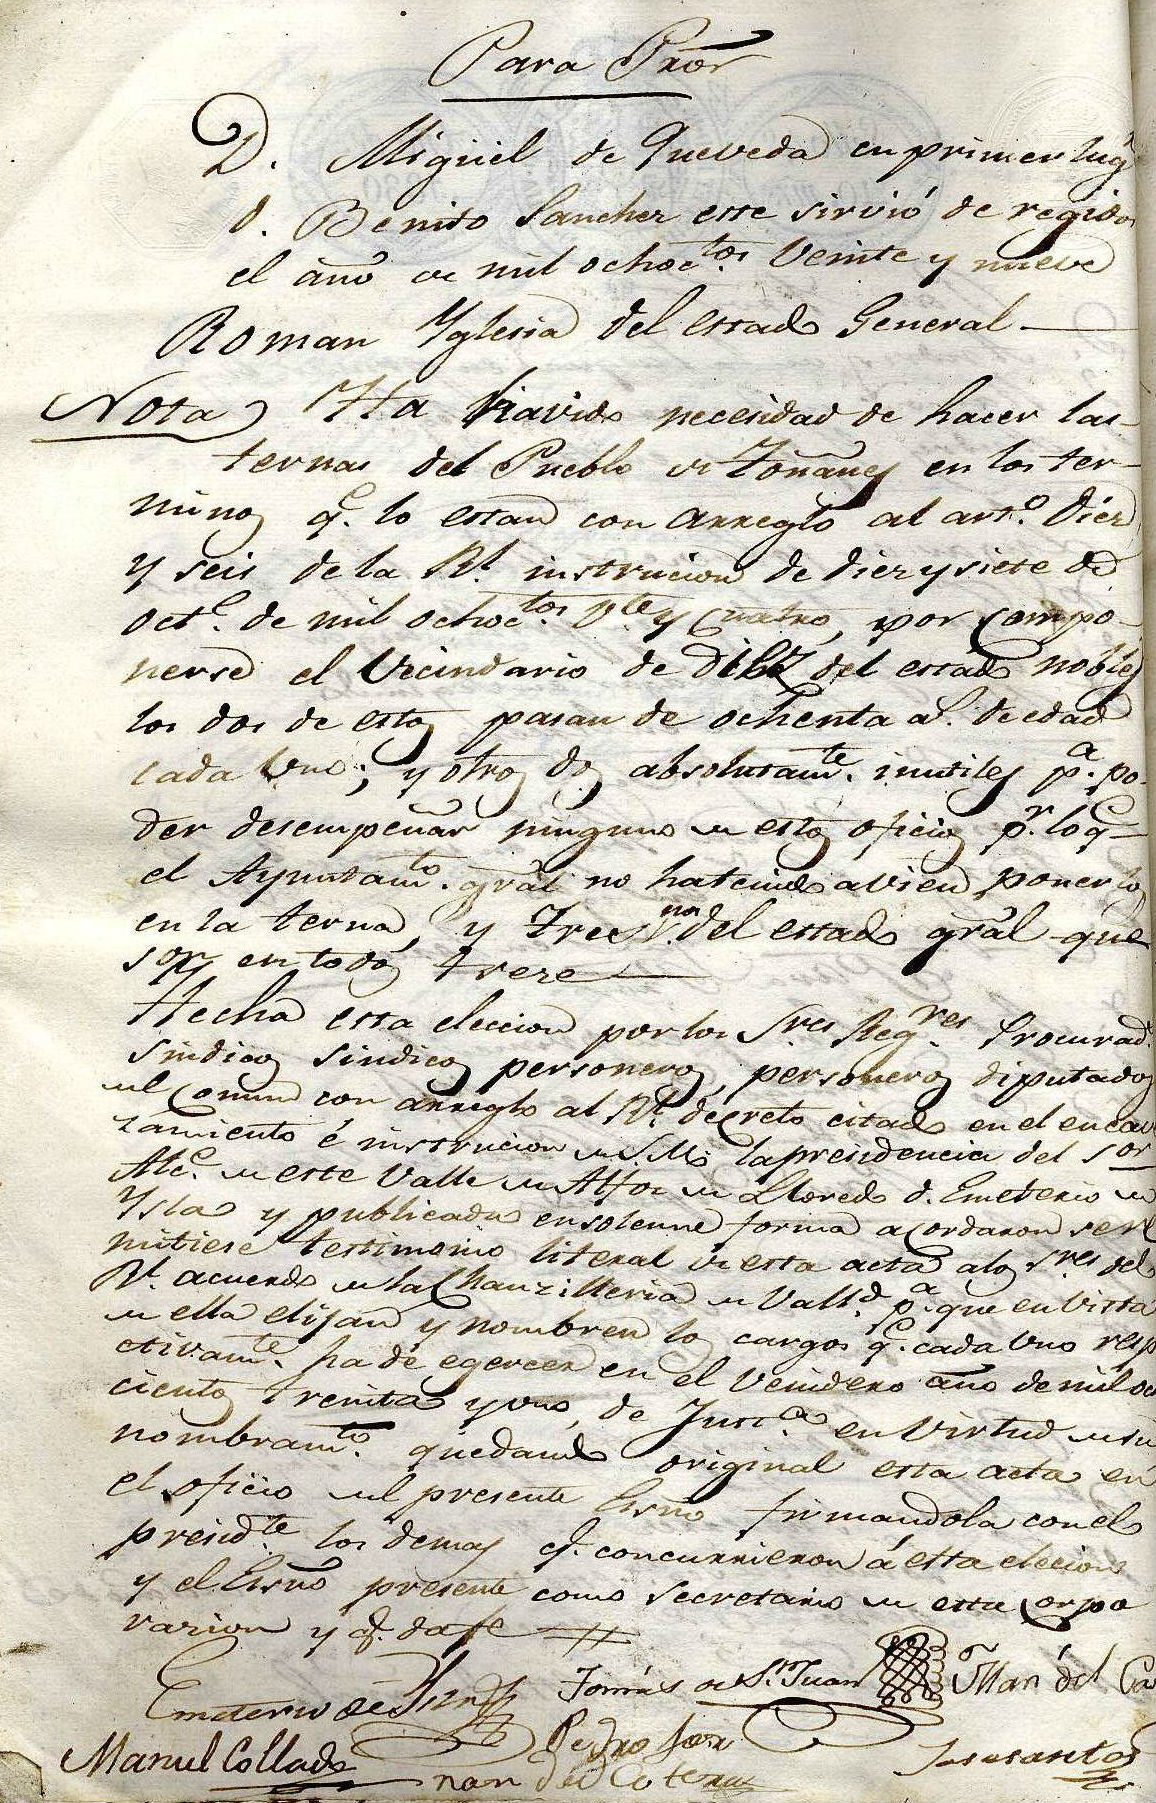 Para Pror
D. Miguel de Queveda en primer lugr
d. Benito Sanchez este sirvió de regidor
el año de mil ochoctos. Veinte y nueve
Roman Yglesia del estado General
Nota Ha havido necesidad de hacer las
ternas del Pueblo de Toñanes en los ter-
minos q.e lo estan con arreglo al arto. Diez
y seis de la Rl. instrucion de diez y siete de
octe. de mil ochoctos. Vte. y cuatro, por compo-
nerse el Vecindario de diez del estado nobles
los dos de estos pasan de ochenta as. de edad
cada Uno; y otros dos absolutamte. inutiles pa. po-
der desempeñar ninguno de estos oficios pr. lo qe
el Ayuntamto. gral no ha tenido a vien ponerlos
en la terna, y Tres del estado gral que
son en todos treze
Hecha esta eleccion por los Sres Regres. Procuradr.
sindicos sindicos personeros, personeros diputados
del Comun con arreglo al Rl. decreto citado en el encav
zamiento é instrucion de S.M. la presidencia del Sor
Alce. de este Valle de Alfoz de Lloredo d. Emeterio de
Ysla y publicada en solenne forma acordaron se re
mitiese testimonio literal de esta acta a los Sres del
Rl. acuerdo de la Chanzilleria de Valld. pa. que en Vista
de ella elijan y nombren los cargos qe. cada Uno resp
ctivamte. ha de egercer en el Venidero año de mil oc
cientos treinta y uno, de Justa. en Virtud de su
nombramto. quedando original esta acta en
el oficio del presente Esno firmandola con el
presidte los demas q. concurrieron á esta eleccion
y el Esno presente como secretario de esta Corpo
racion y q. da fe
Emeterio de Isla Tomás de Sn. Juan Man del Ca
Manuel Collado Pedro Fer Jose santos
nan del Coterillo